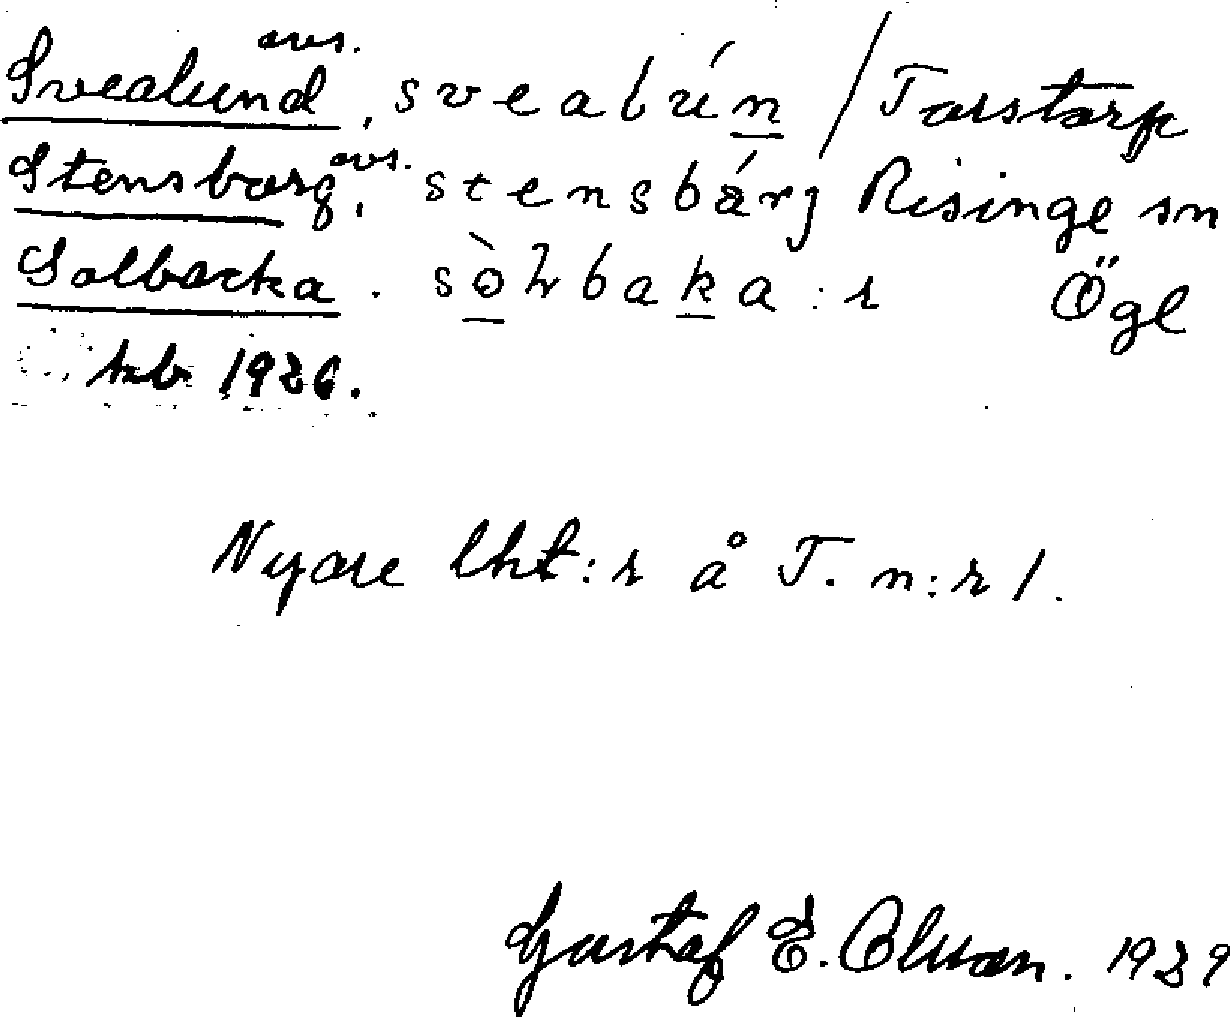 Svealund avs., svealún / Torstorp
Stensborg avs., stensbárj Risinge sn
Solbacka. sòlbaka :r Ögl
1926.
Nyare lht:r å T. n:r 1.
Gustaf E. Olsson. 1939